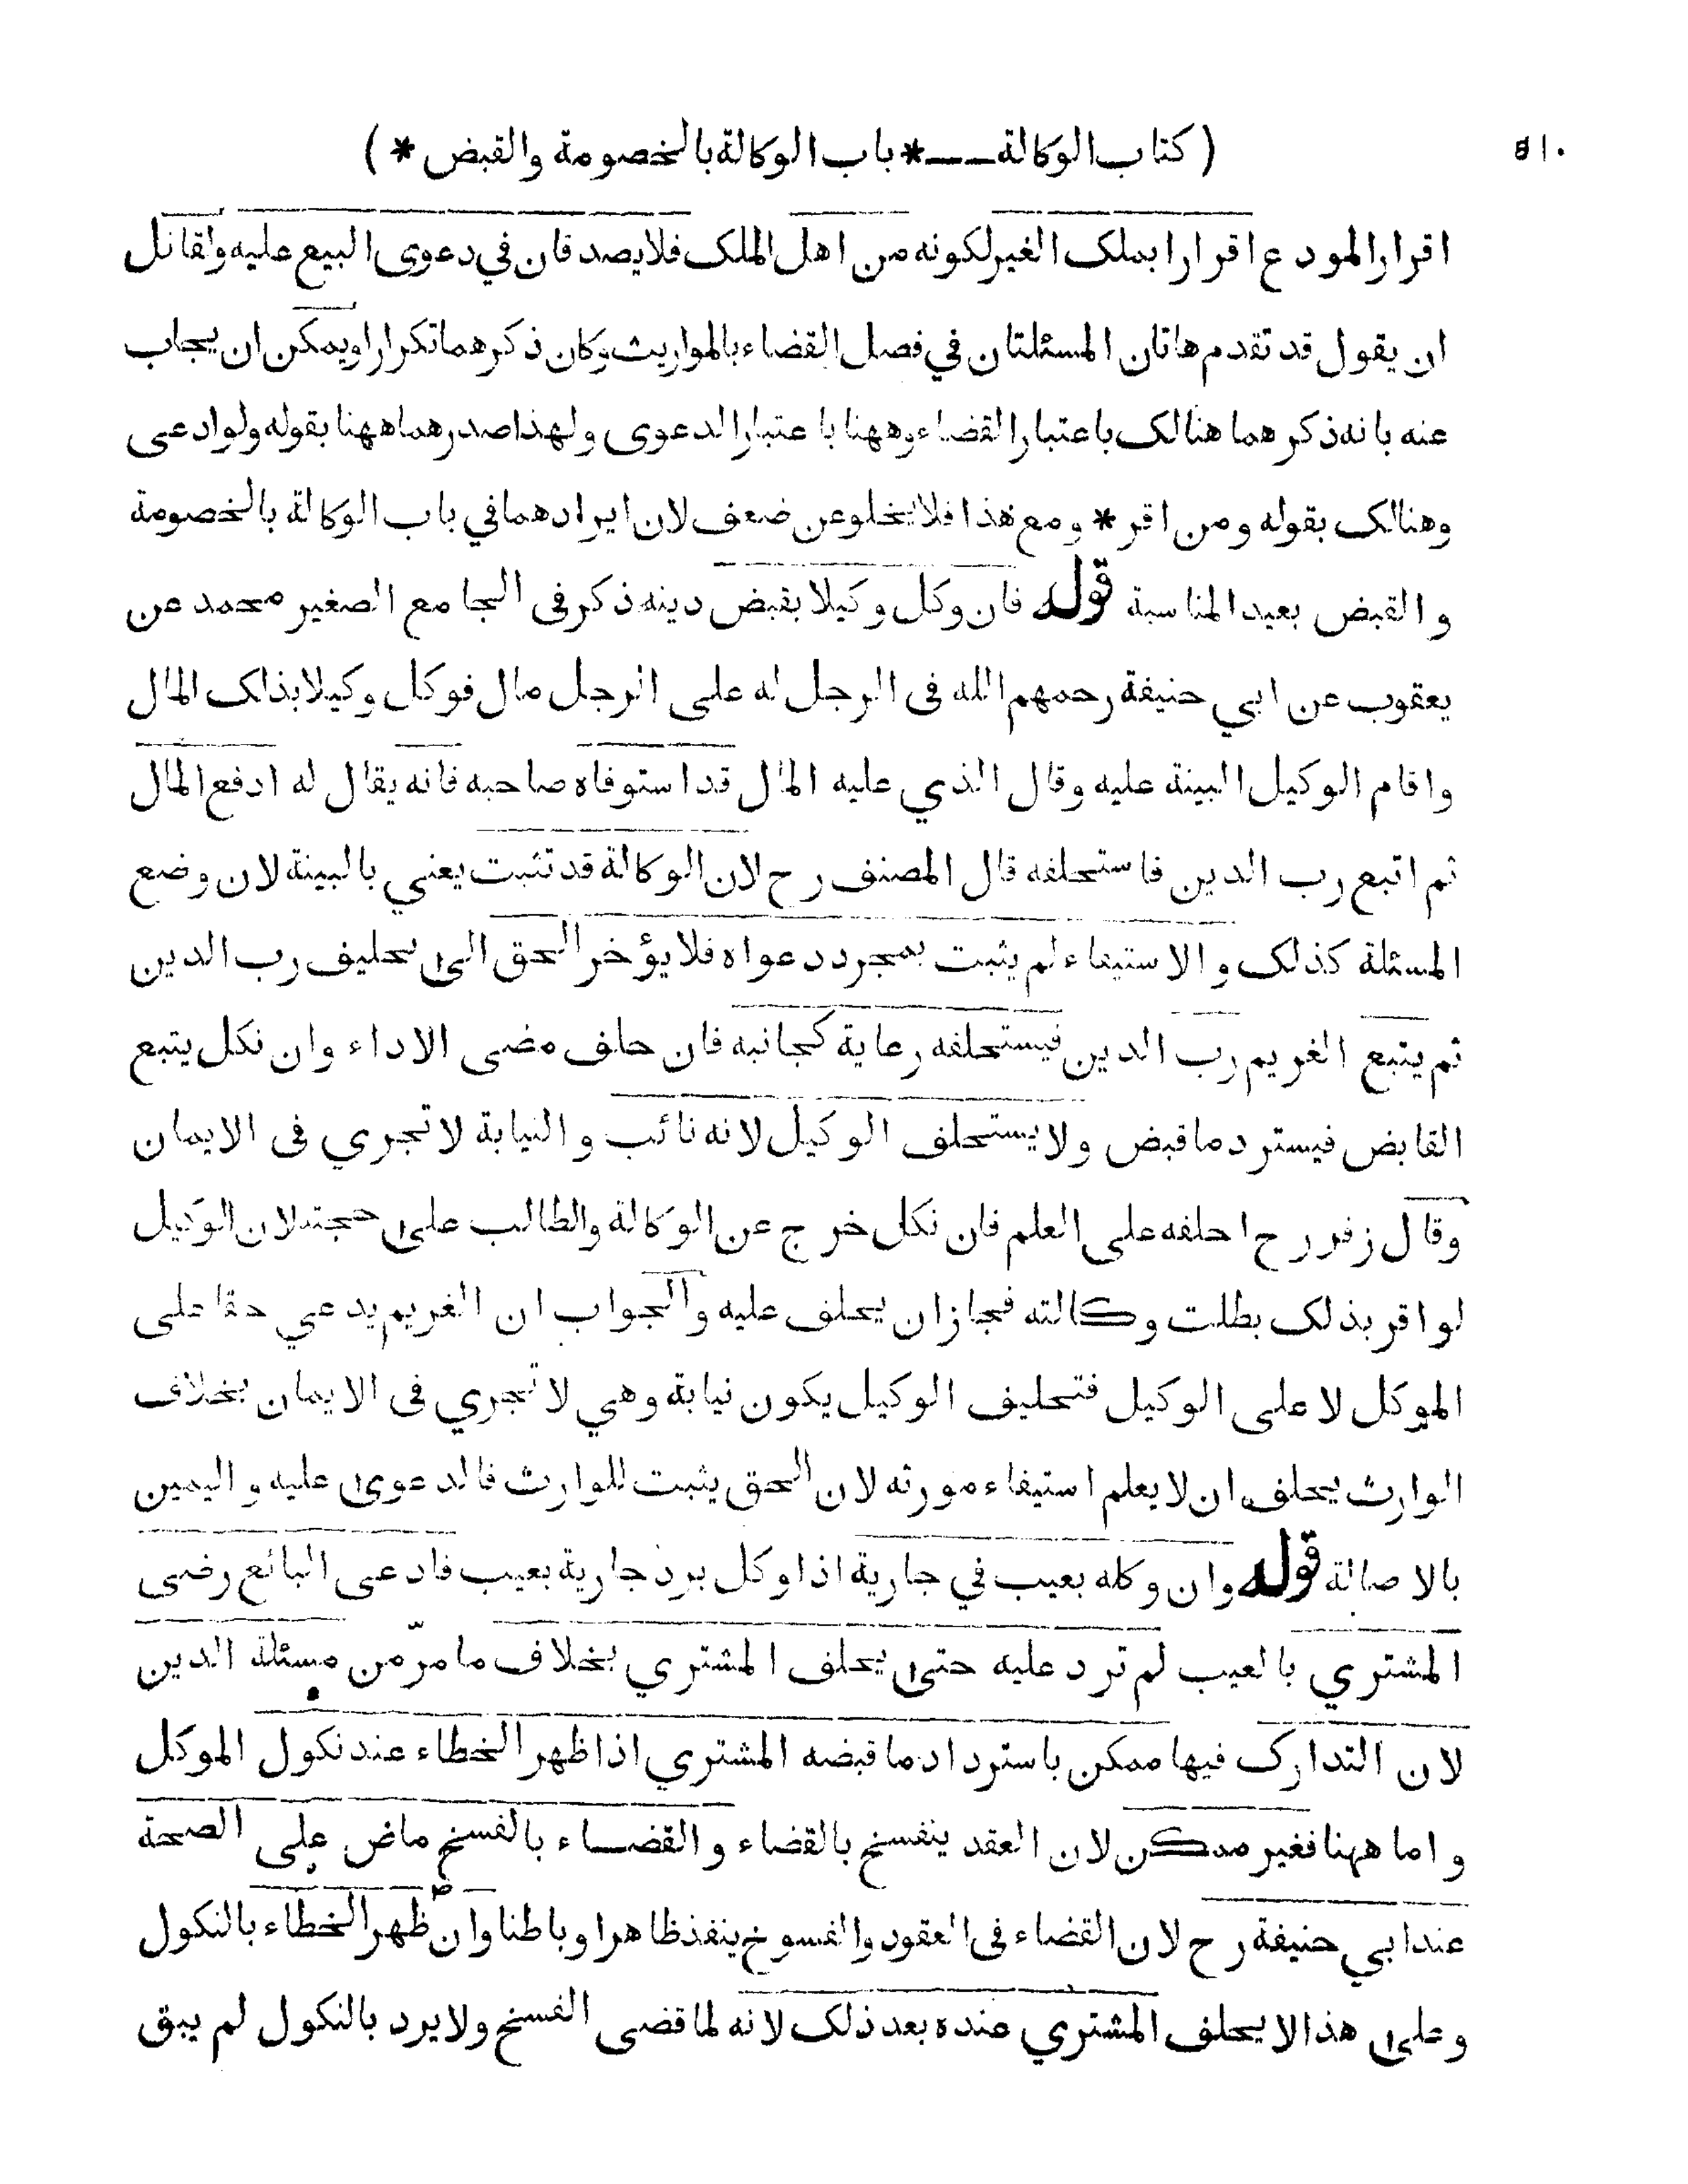 ( كتاب الوكالة — * باب الوكالة بالخصومة والقبض * ) ٥١٠
اقرار المودع اقرارا بملك الغير لكونه من اهل الملك فلا يصدقان في دعوى البيع عليه ولقائل
ان يقول قد تقدم هاتان المسئلتان في فصل القضاء بالمواريث وكان ذكرهما تكرارا ويمكن ان يجاب
عنه بانه ذكرهما هنالك باعتبار القضاء وههنا باعتبار الدعوى ولهذا صدرهما ههنا بقوله ولو ادعى
وهنالك بقوله ومن اقر * ومع هذا فلا يخلو عن ضعف لان ايرادهما في باب الوكالة بالخصومة
والقبض بعيد المناسبة قوله فان وكل وكيلا بقبض دينه ذكر فى الجامع الصغير محمد عن
يعقوب عن ابي حنيفة رحمهم الله فى الرجل له على الرجل مال فوكل وكيلا بذلك المال
واقام الوكيل البينة عليه وقال الذي عليه المال قد استوفاه صاحبه فانه يقال له ادفع المال
ثم اتبع رب الدين فاستحلفه قال المصنف رح لان الوكالة قد تثبت يعني بالبينة لان وضع
المسئلة كذلك والاستيفاء لم يثبت بمجرد دعواه فلا يؤخر الحق الى تحليف رب الدين
ثم يتبع الغريم رب الدين فيستحلفه رعاية لجانبه فان حلف مضى الاداء وان نكل يتبع
القابض فيسترد ما قبض ولا يستحلف الوكيل لانه نائب والنيابة لا تجري فى الايمان
وقال زفر رح احلفه على العلم فان نكل خرج عن الوكالة والطالب على حجته لان الوكيل
لو اقر بذلك بطلت وكالته فجاز ان يحلف عليه والجواب ان الغريم يدعي حقا على
الموكل لا على الوكيل فتحليف الوكيل يكون نيابة وهي لا تجري فى الايمان بخلاف
الوارث يحلف ان لا يعلم استيفاء مورثه لان الحق يثبت للوارث فالدعوى عليه واليمين
بالاصالة قوله وان وكله بعيب في جارية اذا وكل برد جارية بعيب فادعى البائع رضى
المشتري بالعيب لم ترد عليه حتى يحلف المشتري بخلاف ما مرّ من مسئلة الدين
لان التدارك فيها ممكن باسترداد ما قبضه المشتري اذا ظهر الخطاء عند نكول الموكل
واما ههنا فغير ممكن لان العقد ينفسخ بالقضاء والقضاء بالفسخ ماض على الصحة
عند ابي حنيفة رح لان القضاء فى العقود والفسوخ ينفذ ظاهرا وباطنا وان ظهر الخطاء بالنكول
وعلى هذا لا يحلف المشتري عنده بعد ذلك لانه لما قضى الفسخ ولا يرد بالنكول لم يبق